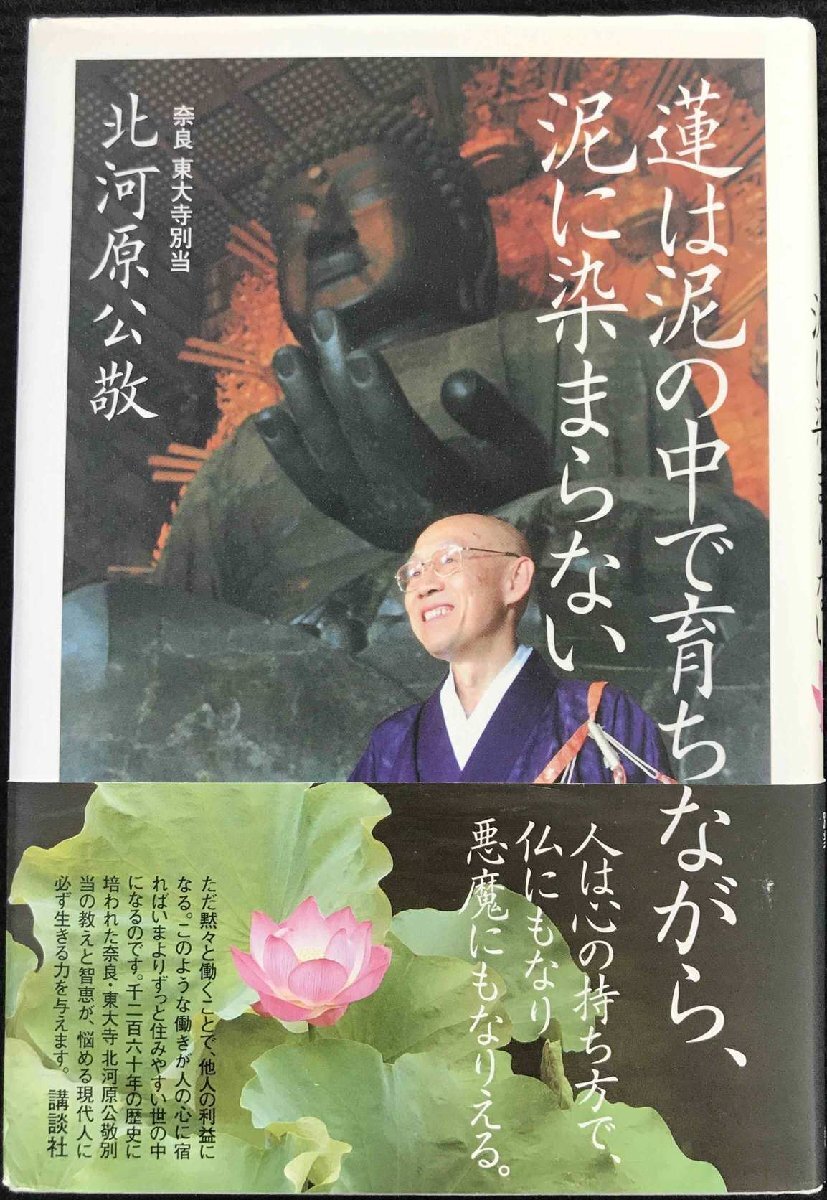 蓮は泥の中で育ちながら、
泥に染まらない
奈良 東大寺別当
北河原公敬
人は心の持ち方で、
仏にもなり
悪魔にもなりえる。
ただ黙々と働くことで、他人の利益に
なる。このような働きが人の心に宿
ればいまよりずっと住みやすい世の中
になるのです。千二百六十年の歴史に
培われた奈良・東大寺 北河原公敬別
当の教えと智恵が、悩める現代人に
必ず生きる力を与えます。 講談社